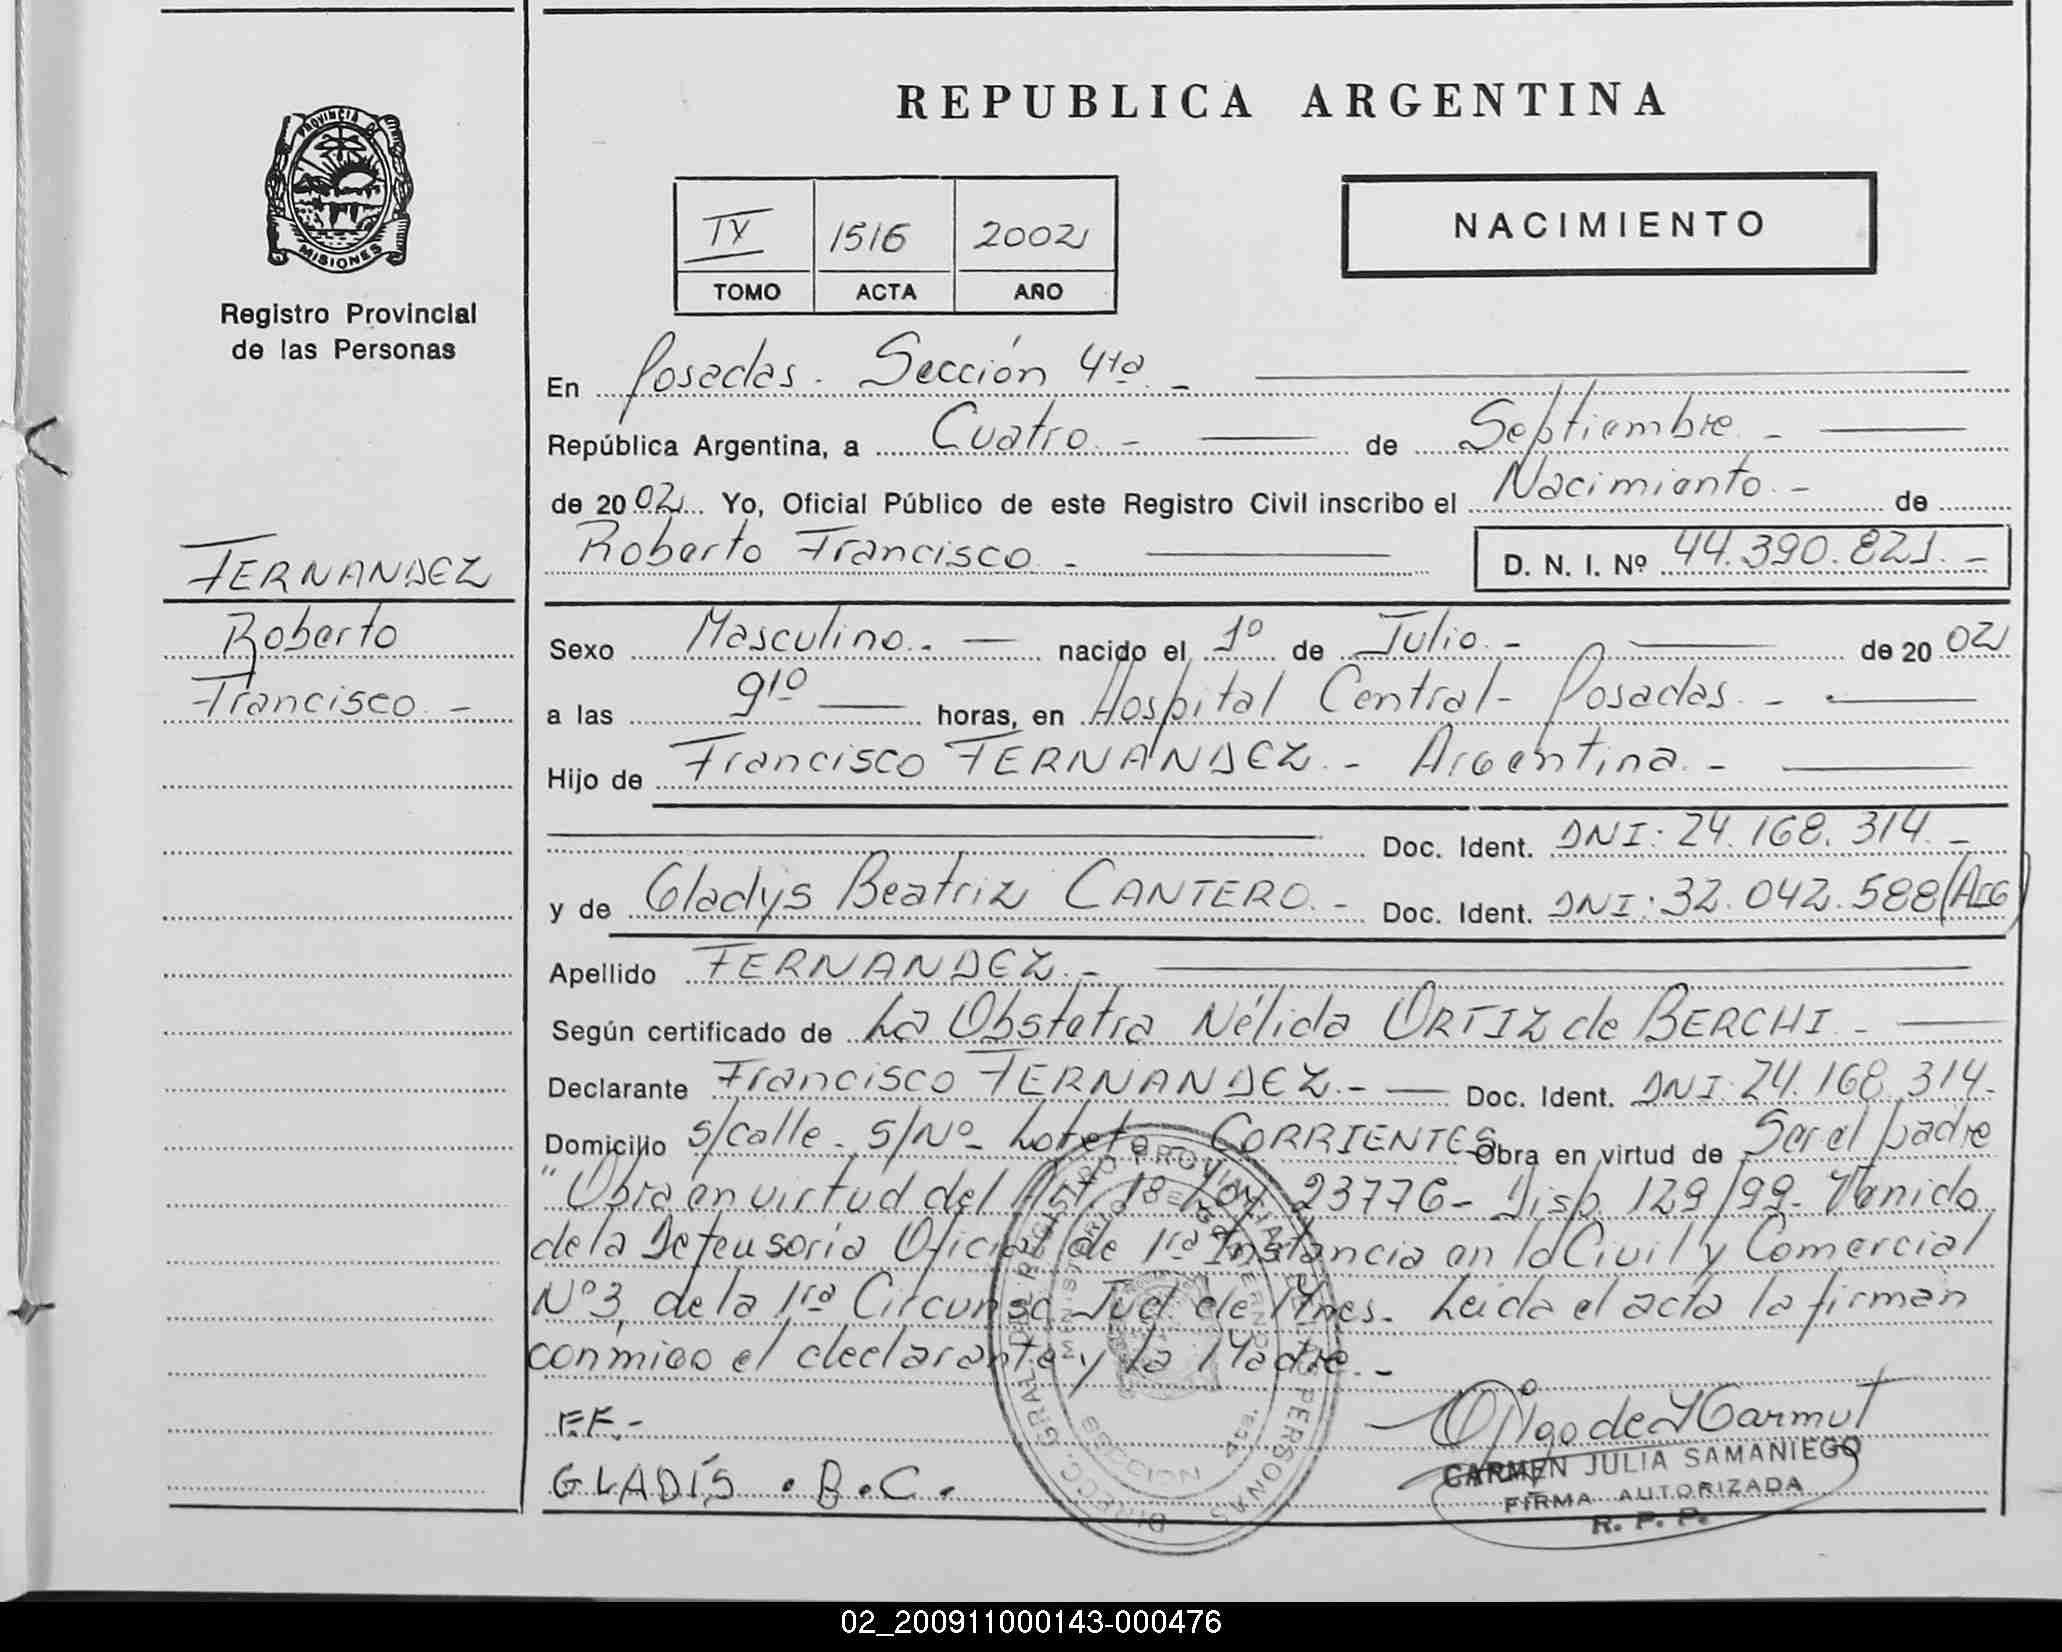 REPUBLICA ARGENTINA
PROVINCIA DE
MISIONES
Registro Provincial
de las Personas
IV 1516 2002
TOMO ACTA AÑO
NACIMIENTO
En Posadas. Sección 4ta.-
República Argentina, a Cuatro.- de Septiembre.-
de 2002 Yo, Oficial Público de este Registro Civil inscribo el Nacimiento.- de
Roberto Francisco.- D. N. I. Nº 44.390.821.-
FERNANDEZ
Roberto
Francisco.-
Sexo Masculino.- nacido el 1º de Julio.- de 2002
a las 910 horas, en Hospital Central- Posadas.-
Hijo de Francisco FERNANDEZ.- Argentina.-
Doc. Ident. DNI: 24.168.314.-
y de Gladys Beatriz CANTERO.- Doc. Ident. DNI: 32.042.588 (Arg)
Apellido FERNANDEZ.-
Según certificado de La Obstetra Nélida ORTIZ de BERCHI.-
Declarante Francisco FERNANDEZ.- Doc. Ident. DNI: 24.168.314.-
Domicilio s/calle- s/Nº- Lote CORRIENTES Obra en virtud de Ser el padre
"Obra en virtud del Art. 18 Ley 23776- Disp. 129/99- Venido
de la Defensoria Oficial de 1ra Instancia en lo Civil y Comercial
Nº3, de la 1ra Circunsc. Jud. de Mnes.- Leida el acta la firman
conmigo el declarante y la Madre.-
F.F.-
GLADÍS . B . C .
DIRECC. GRAL. DEL REGISTRO PROVINCIAL DE LAS PERSONAS
MINISTERIO DE GOBIERNO
CARMEN JULIA SAMANIEGO
FIRMA AUTORIZADA
R. P. P.
02_200911000143-000476